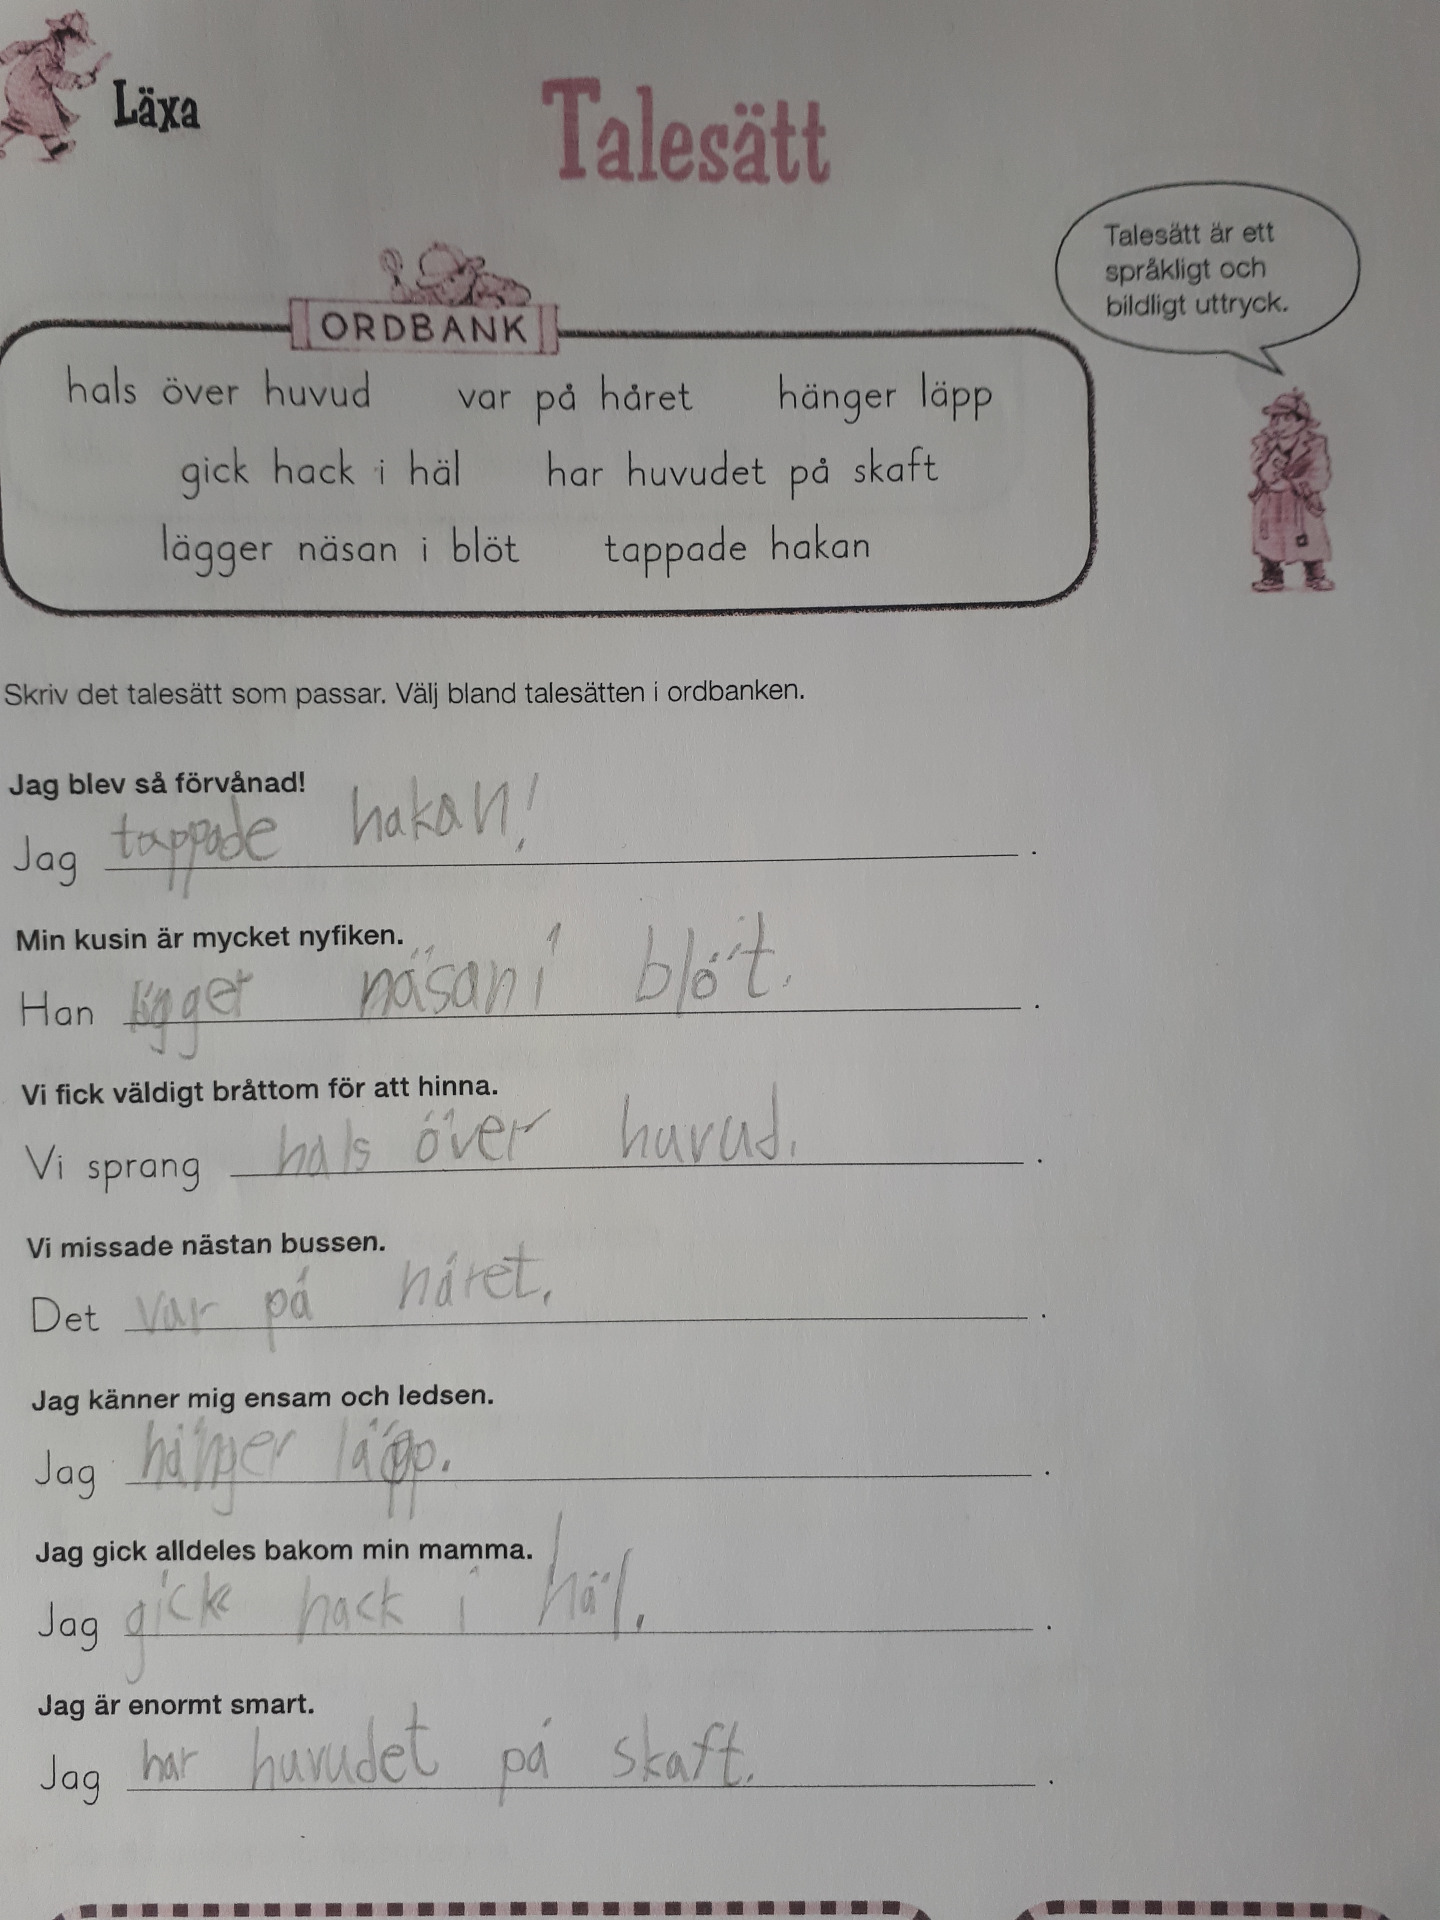 Läxa
Talesätt
Talesätt är ett
språkligt och
bildligt uttryck.
ORDBANK
hals över huvud var på håret hänger läpp
gick hack i häl har huvudet på skaft
lägger näsan i blöt tappade hakan
Skriv det talesätt som passar. Välj bland talesätten i ordbanken.
Jag blev så förvånad!
Jag tappade hakan! .
Min kusin är mycket nyfiken.
Han lägger näsan i blöt. .
Vi fick väldigt bråttom för att hinna.
Vi sprang hals över huvud. .
Vi missade nästan bussen.
Det var på håret. .
Jag känner mig ensam och ledsen.
Jag hänger läpp. .
Jag gick alldeles bakom min mamma.
Jag gick hack i häl. .
Jag är enormt smart.
Jag har huvudet på skaft. .